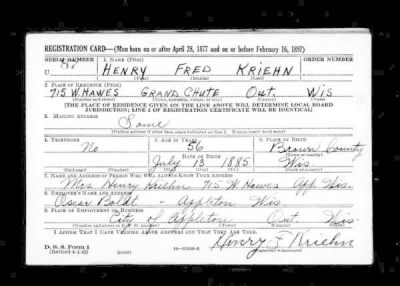 REGISTRATION CARD—(Men born on or after April 28, 1877 and on or before February 16, 1897)
SERIAL NUMBER 1. NAME (Print) ORDER NUMBER
U HENRY FRED KRIEHN
(First) (Middle) (Last)
2. PLACE OF RESIDENCE (Print)
715 W. HAWES GRAND CHUTE Out. Wis
(Number and street) (Town, township, village, or city) (County) (State)
[THE PLACE OF RESIDENCE GIVEN ON THE LINE ABOVE WILL DETERMINE LOCAL BOARD
JURISDICTION; LINE 2 OF REGISTRATION CERTIFICATE WILL BE IDENTICAL]
3. MAILING ADDRESS
Same
[Mailing address if other than place indicated on line 2. If same insert word same]
4. TELEPHONE 5. AGE IN YEARS 6. PLACE OF BIRTH
No 56 Brown County
DATE OF BIRTH (Town or county)
July 13 1885 Wis
(Exchange) (Number) (Mo.) (Day) (Yr.) (State or country)
7. NAME AND ADDRESS OF PERSON WHO WILL ALWAYS KNOW YOUR ADDRESS
Mrs Henry Kriehn 715 W. Hawes App. Wis.
8. EMPLOYER'S NAME AND ADDRESS
Oscar Boldt - Appleton Wis.
9. PLACE OF EMPLOYMENT OR BUSINESS
City of Appleton Out Wis.
(Number and street or R. F. D. number) (Town) (County) (State)
I AFFIRM THAT I HAVE VERIFIED ABOVE ANSWERS AND THAT THEY ARE TRUE.
D. S. S. Form 1
(Revised 4-1-42) (over)
Henry F Kriehn